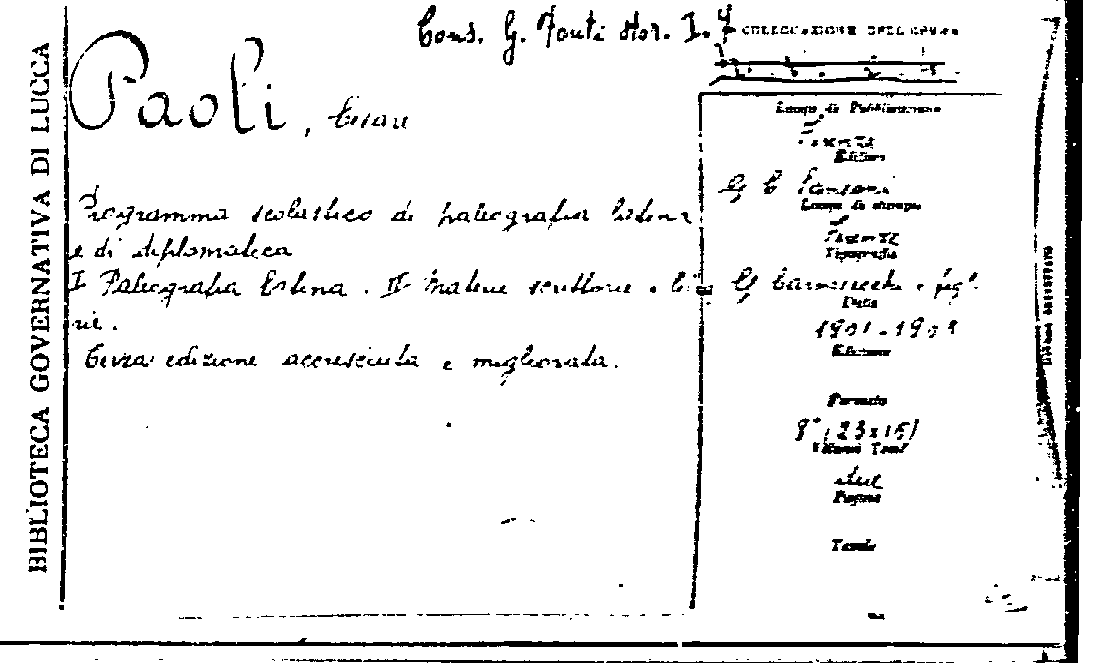 BIBLIOTECA GOVERNATIVA DI LUCCA
Cons. G. Fonti stor. I. 4
COLLOCAZIONE DELL'OPERA
Paoli, Cesare
Programma scolastico di paleografia latina
e di diplomatica
I Paleografia latina. II Materie scrittorie e libra
rie.
Terza edizione accresciuta e migliorata.
Luogo di Pubblicazione
Firenze
Editore
G C Sansoni
Luogo di stampa
Firenze
Tipografia
G Carnesecchi e figli
Data
1901-1901
Edizione
Formato
8° (23x15)
Volumi Tomi
due
Pagine
Tavole